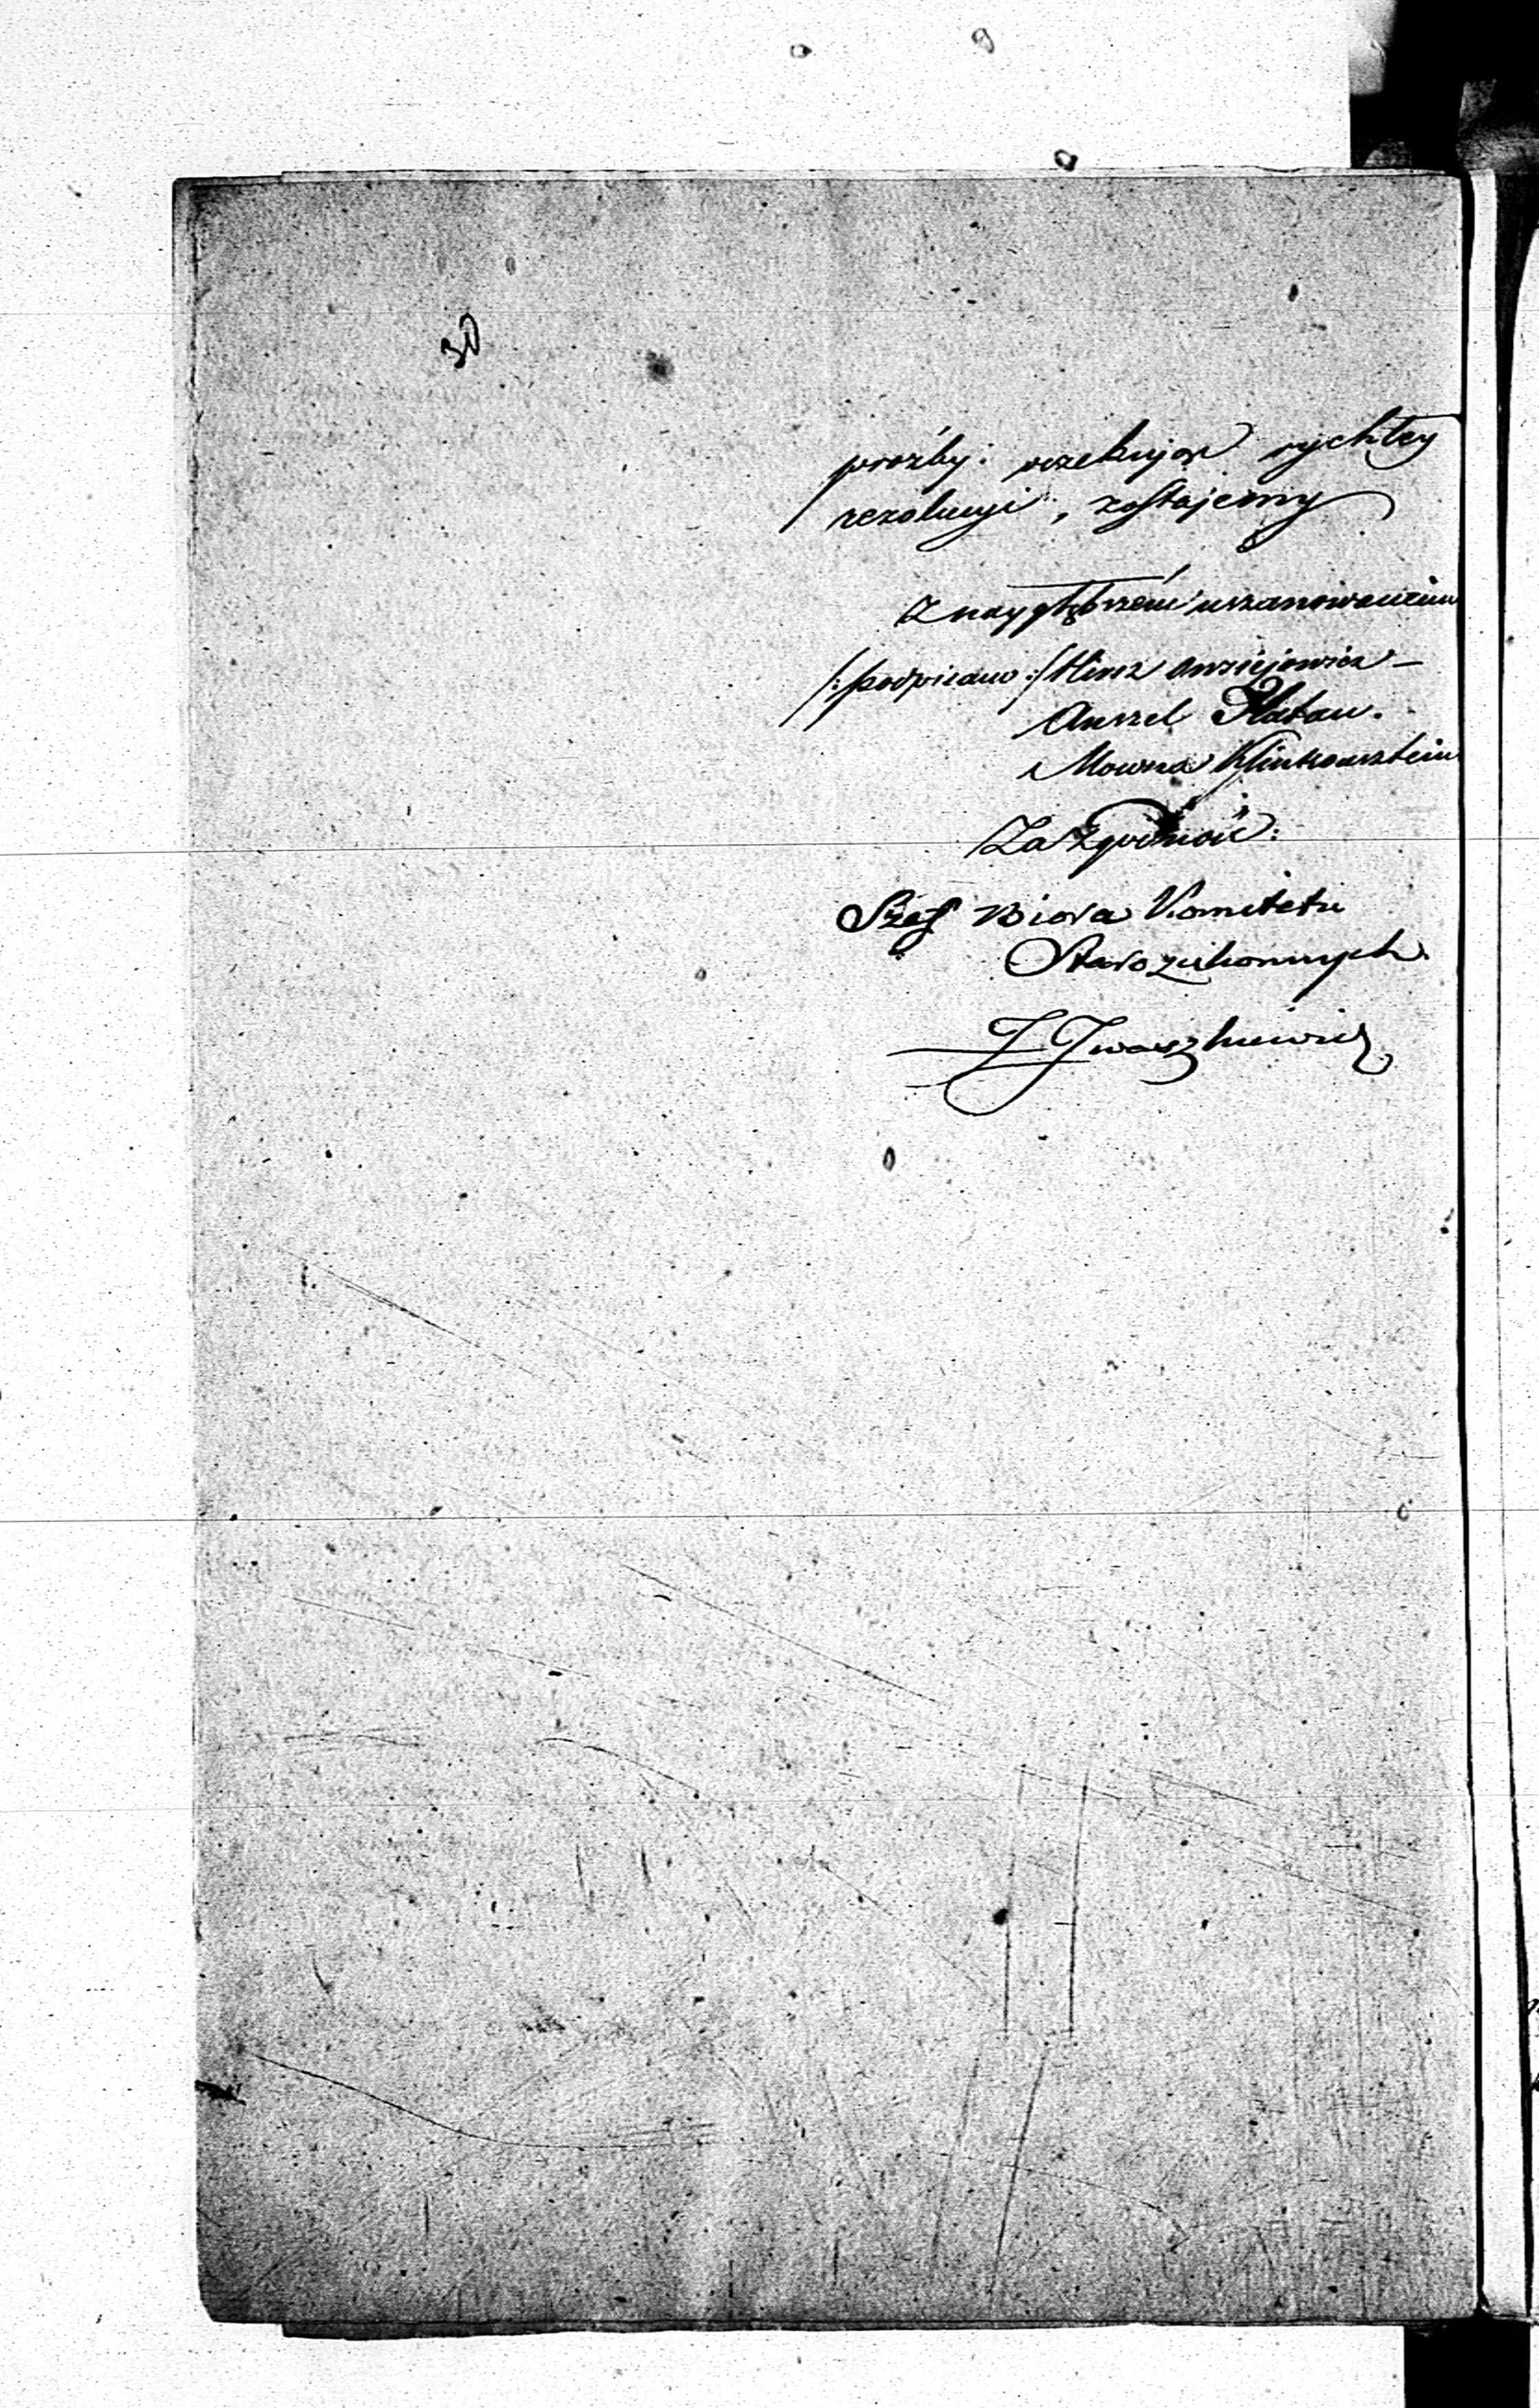 30
proźby: oczekując rychłey
rezolucyi, zostajemy
Z nayglębszem uszanowaniem
/:podpisano:/ Hersz
Anszel Platau.
Klinkowsztein
Za zgodność:
Szef Biora Komitetu
Starozakonnych
J Iwaszkiewicz